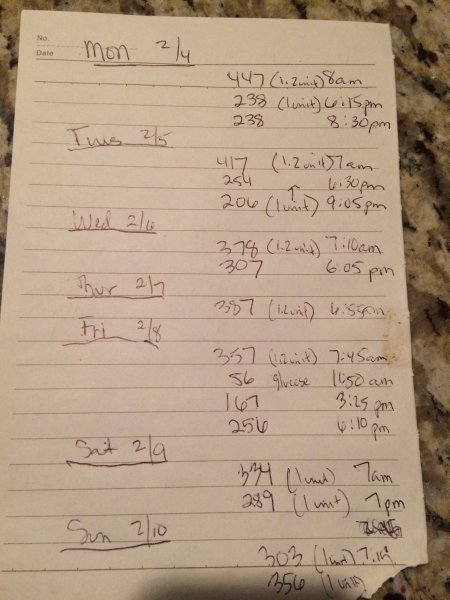 No.
Date
Mon 2/4
447 (1.2unit) 8am
238 (1unit) 6:15pm
238 8:30pm
Tues 2/5
417 (1.2unit) 7am
254 6:30pm
206 (1unit) 9:05pm
Wed 2/6
378 (1.2unit) 7:10am
307 6:05 pm
Thur 2/7
387 (1.2unit)
Fri 2/8
357 (1.2unit) 7:45am
56 glucose 11:50 am
167 3:25 pm
256 6:10 pm
Sat 2/9
334 (1unit) 7am
289 (1unit) 7pm
Sun 2/10
303 (1unit)
356 (1unit)